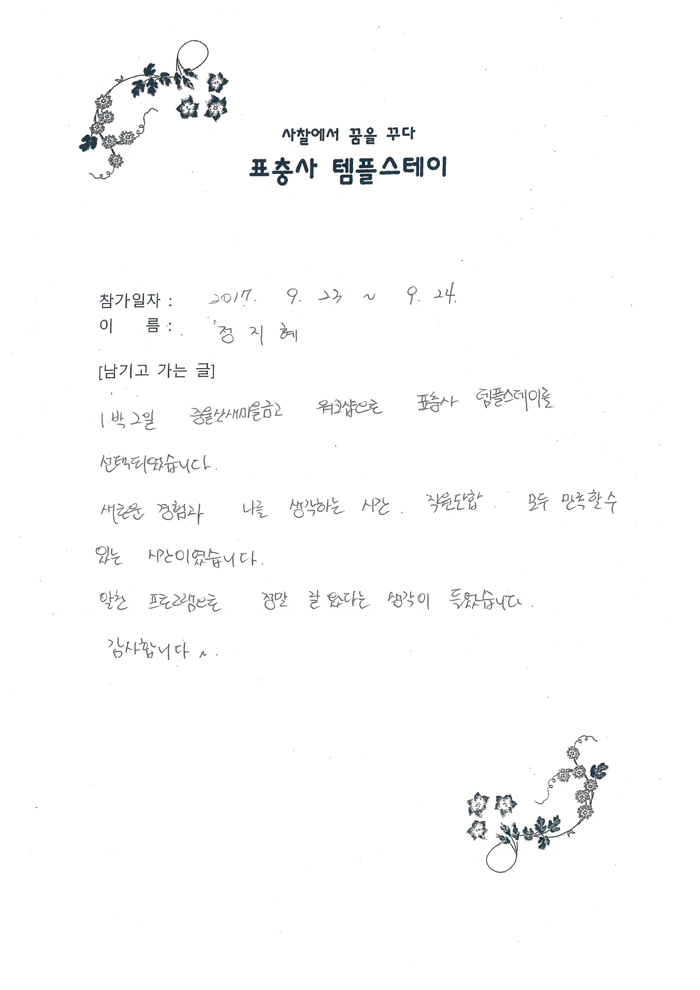 사찰에서 꿈을 꾸다
표충사 템플스테이
참가일자 : 2017. 9. 23 ~ 9. 24.
이 름 : 정지혜
[남기고 가는 글]
1박2일 중울산새마을금고 워크샵으로 표충사 템플스테이를
선택되었습니다.
새로운 경험과 나를 생각하는 시간. 직원단합 모두 만족할수
있는 시간이였습니다.
알찬 프로그램으로 정말 잘 왔다는 생각이 들었습니다.
감사합니다 ~.